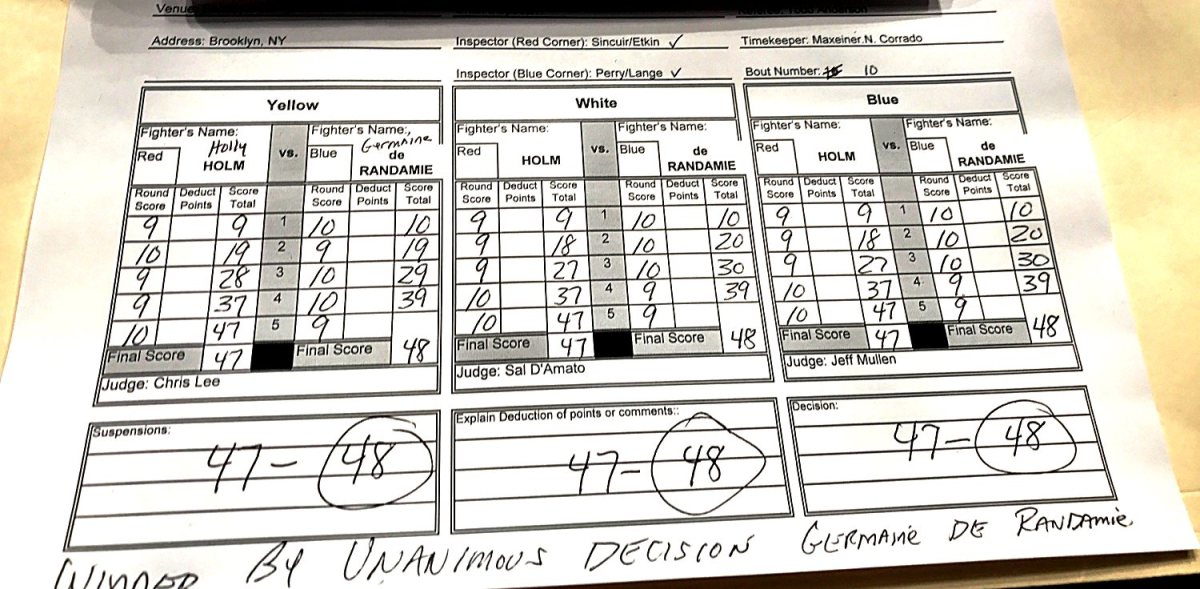 Venue
Address: Brooklyn, NY
Inspector (Red Corner): Sincuir/Etkin ✓
Timekeeper: Maxeiner.N. Corrado
Inspector (Blue Corner): Perry/Lange ✓
Bout Number: 10
Yellow
Fighter's Name: Holly vs. Fighter's Name:, Germaine
Red HOLM Blue de RANDAMIE
Round Score Deduct Points Score Total Round Score Deduct Points Score Total
9 9 1 10 10
10 19 2 9 19
9 28 3 10 29
9 37 4 10 39
10 47 5 9 48
Final Score 47 Final Score
Judge: Chris Lee
White
Fighter's Name: vs. Fighter's Name:
Red HOLM Blue de RANDAMIE
Round Score Deduct Points Score Total Round Score Deduct Points Score Total
9 9 1 10 10
9 18 2 10 20
9 27 3 10 30
10 37 4 9 39
10 47 5 9 48
Final Score 47 Final Score
Judge: Sal D'Amato
Blue
Fighter's Name: vs. Fighter's Name:
Red HOLM Blue de RANDAMIE
Round Score Deduct Points Score Total Round Score Deduct Points Score Total
9 9 1 10 10
9 18 2 10 20
9 27 3 10 30
10 37 4 9 39
10 47 5 9 48
Final Score 47 Final Score
Judge: Jeff Mullen
Suspensions:
47-48
Explain Deduction of points or comments::
47-48
Decision:
47-48
WINNER BY UNANIMOUS DECISION GERMAINE DE RANDAMIE